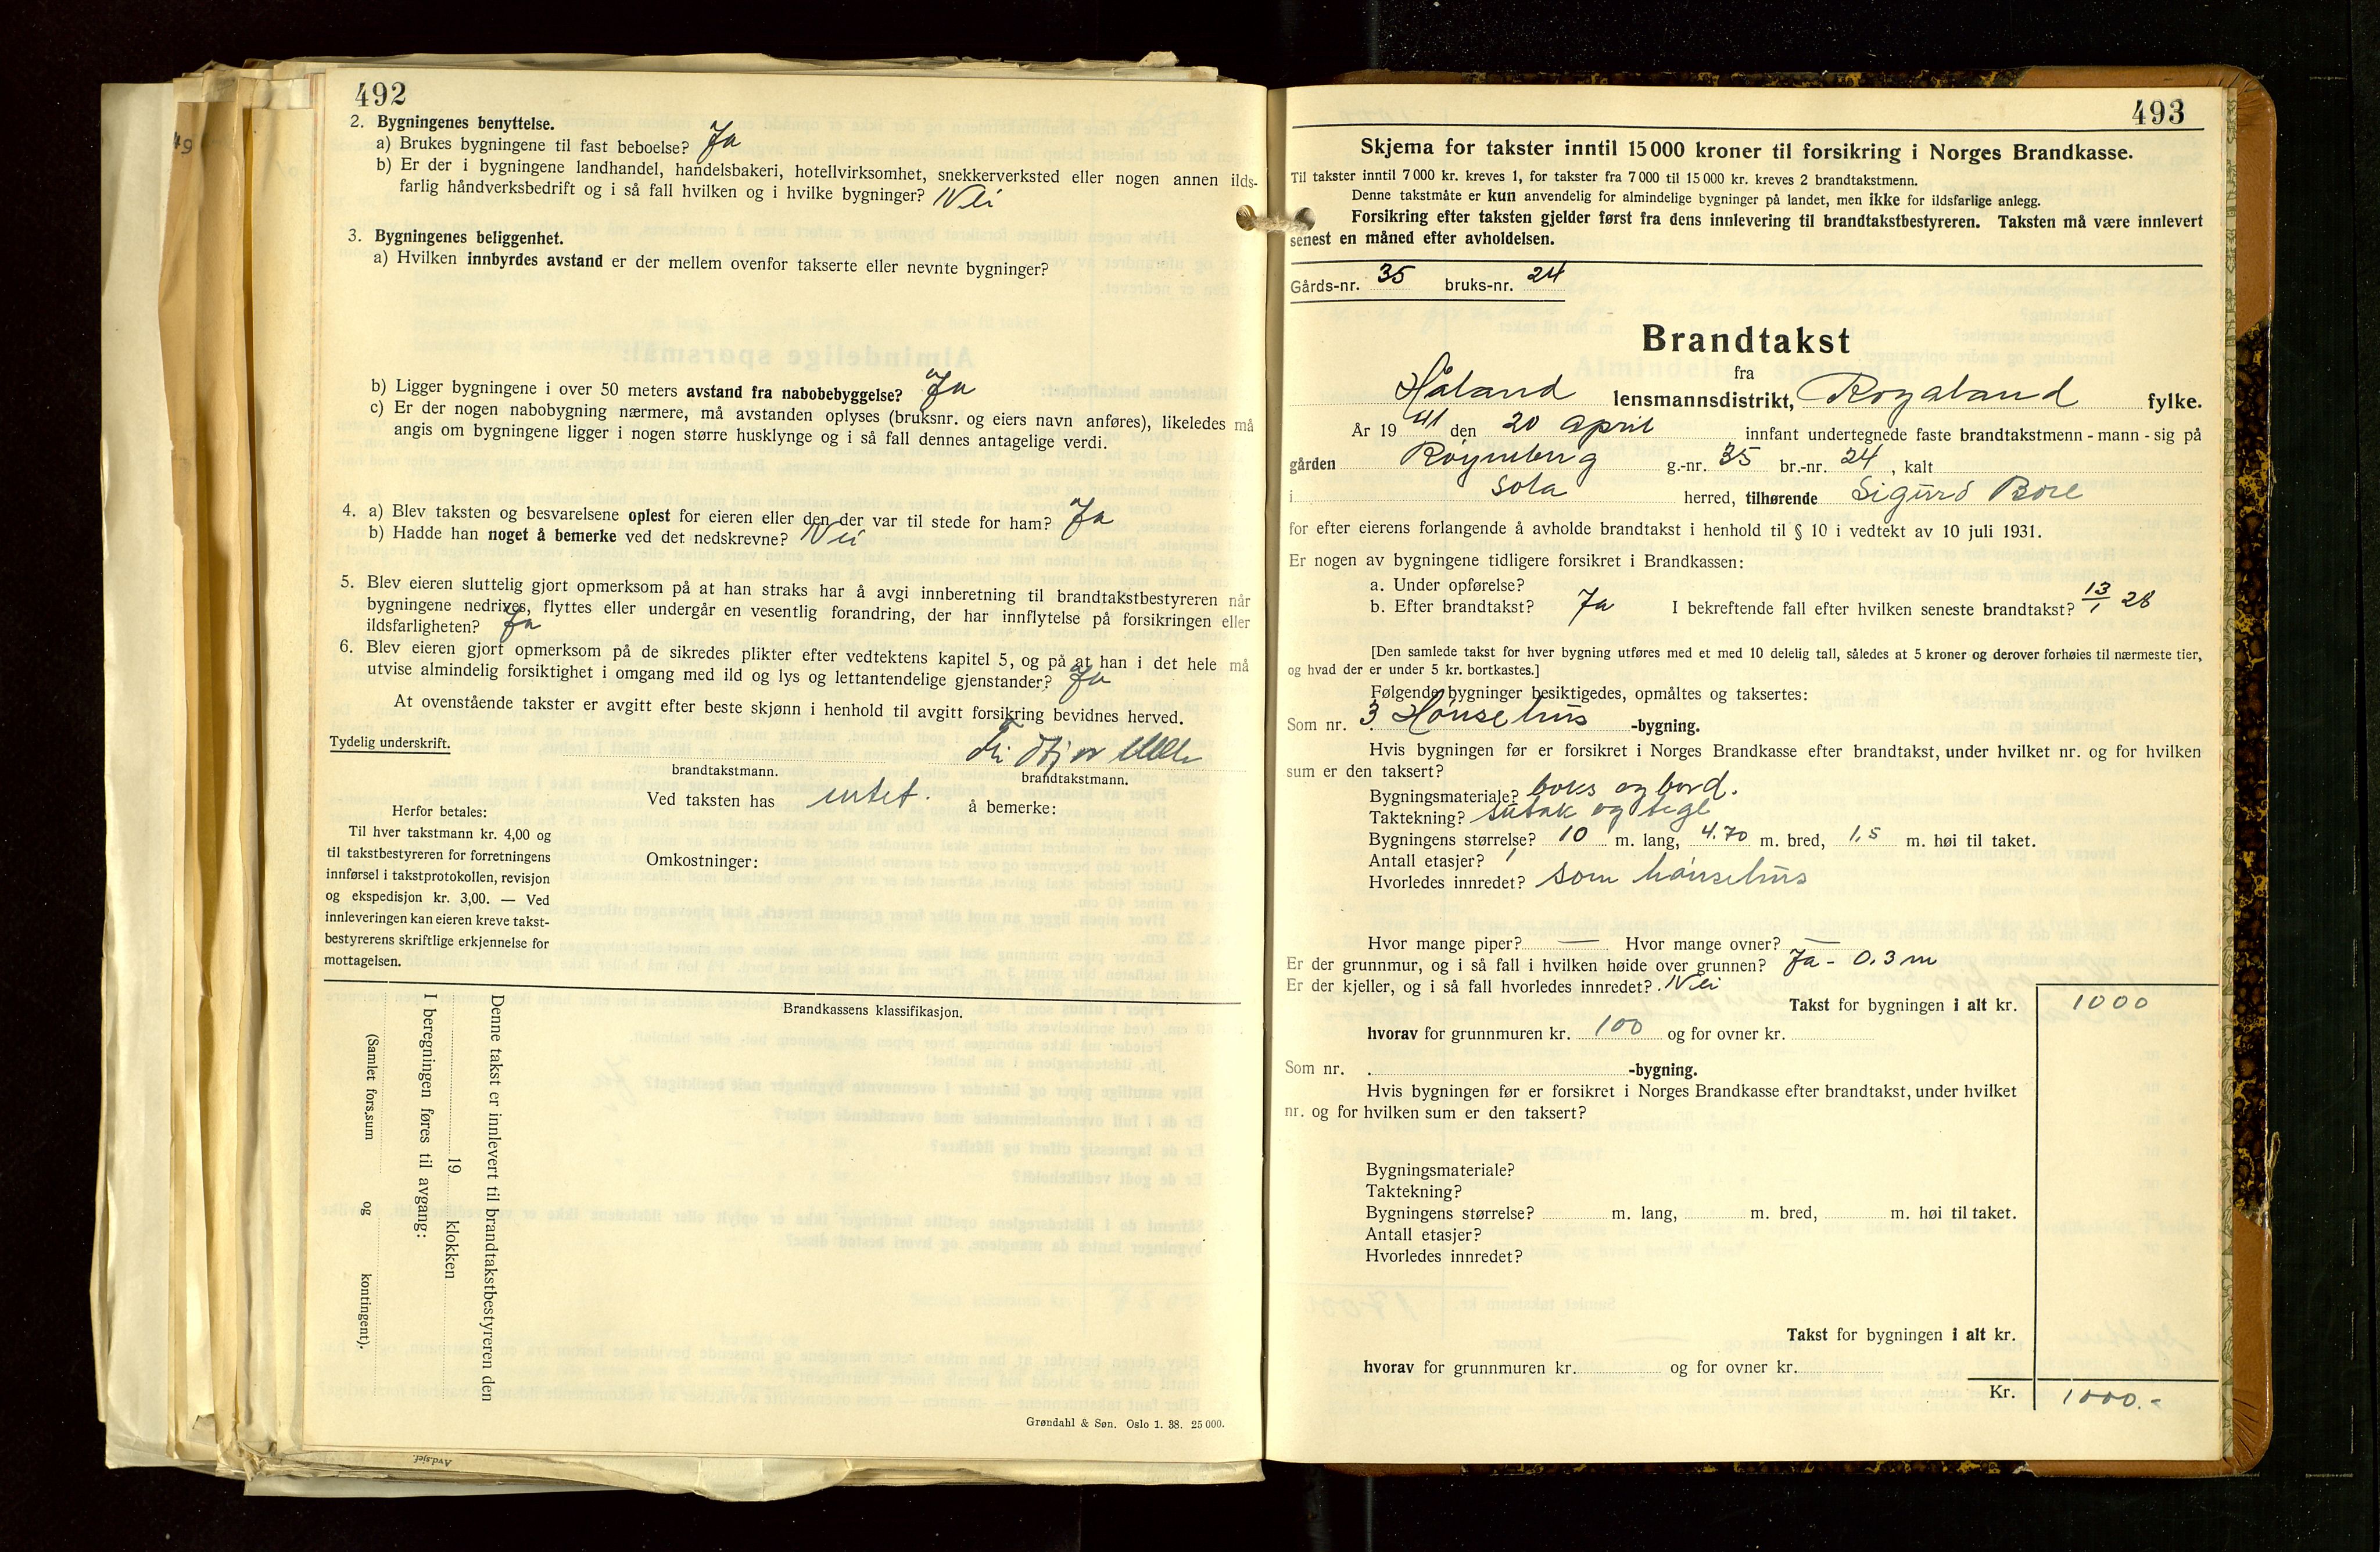 492
2. Bygningenes benyttelse.
a) Brukes bygningene til fast beboelse? Ja
b) Er der i bygningene landhandel, handelsbakeri, hotellvirksomhet, snekkerverksted eller nogen annen ilds-
farlig håndverksbedrift og i så fall hvilken og i hvilke bygninger? Nei
3. Bygningenes beliggenhet.
a) Hvilken innbyrdes avstand er der mellem ovenfor takserte eller nevnte bygninger?
b) Ligger bygningene i over 50 meters avstand fra nabobebyggelse? Ja
c) Er der nogen nabobygning nærmere, må avstanden oplyses (bruksnr. og eiers navn anføres), likeledes må
angis om bygningene ligger i nogen større husklynge og i så fall dennes antagelige verdi.
4. a) Blev taksten og besvarelsene oplest for eieren eller den der var til stede for ham? Ja
b) Hadde han noget å bemerke ved det nedskrevne? Nei
5. Blev eieren sluttelig gjort opmerksom på at han straks har å avgi innberetning til brandtakstbestyreren når
bygningene nedrives, flyttes eller undergår en vesentlig forandring, der har innflytelse på forsikringen eller
ildsfarligheten? Ja
6. Blev eieren gjort opmerksom på de sikredes plikter efter vedtektens kapitel 5, og på at han i det hele må
utvise almindelig forsiktighet i omgang med ild og lys og lettantendelige gjenstander? Ja
At ovenstående takster er avgitt efter beste skjønn i henhold til avgitt forsikring bevidnes herved.
Tydelig underskrift.
brandtakstmann. brandtakstmann.
Ved taksten has intet. å bemerke:
Herfor betales:
Til hver takstmann kr. 4,00 og
til takstbestyreren for forretningens
innførsel i takstprotokollen, revisjon
og ekspedisjon kr. 3,00. — Ved
innleveringen kan eieren kreve takst-
bestyrerens skriftlige erkjennelse for
mottagelsen.
Omkostninger:
Brandkassens klassifikasjon.
Denne takst er innlevert til brandtakstbestyreren den
19 klokken
I beregningen føres til avgang:
(Samlet fors.sum og kontingent).
Grøndahl & Søn. Oslo 1. 38. 25 000.
Avd.sjef.
493
Skjema for takster inntil 15 000 kroner til forsikring i Norges Brandkasse.
Til takster inntil 7 000 kr. kreves 1, for takster fra 7 000 til 15 000 kr. kreves 2 brandtakstmenn.
Denne takstmåte er kun anvendelig for almindelige bygninger på landet, men ikke for ildsfarlige anlegg.
Forsikring efter taksten gjelder først fra dens innlevering til brandtakstbestyreren. Taksten må være innlevert
senest en måned efter avholdelsen.
Gårds-nr. 35 bruks-nr. 24
Brandtakst
fra
Håland lensmannsdistrikt, Rogaland fylke.
År 19 41 den 20 April innfant undertegnede faste brandtakstmenn - mann - sig på
gården Røyneberg g.-nr. 35 br.-nr. 24, kalt
i Sola herred, tilhørende Sigurd Bore
for efter eierens forlangende å avholde brandtakst i henhold til § 10 i vedtekt av 10 juli 1931.
Er nogen av bygningene tidligere forsikret i Brandkassen:
a. Under opførelse?
b. Efter brandtakst? Ja I bekreftende fall efter hvilken seneste brandtakst? 13/1 28
[Den samlede takst for hver bygning utføres med et med 10 delelig tall, således at 5 kroner og derover forhøies til nærmeste tier,
og hvad der er under 5 kr. bortkastes.]
Følgende bygninger besiktigedes, opmåltes og taksertes:
Som nr. 3 Hønsehus -bygning.
Hvis bygningen før er forsikret i Norges Brandkasse efter brandtakst, under hvilket nr. og for hvilken
sum er den taksert?
Bygningsmateriale? boks og bord.
Taktekning? sutak og tegl
Bygningens størrelse? 10 m. lang, 4.70 m. bred, 1,5 m. høi til taket.
Antall etasjer? 1
Hvorledes innredet? som hønsehus
Hvor mange piper? — Hvor mange ovner? —
Er der grunnmur, og i så fall i hvilken høide over grunnen? Ja - 0.3 m
Er der kjeller, og i så fall hvorledes innredet? Nei
Takst for bygningen i alt kr. 1000
hvorav for grunnmuren kr. 100 og for ovner kr.
Som nr. -bygning.
Hvis bygningen før er forsikret i Norges Brandkasse efter brandtakst, under hvilket
nr. og for hvilken sum er den taksert?
Bygningsmateriale?
Taktekning?
Bygningens størrelse? m. lang, m. bred, m. høi til taket.
Antall etasjer?
Hvorledes innredet?
Takst for bygningen i alt kr.
hvorav for grunnmuren kr. og for ovner kr.
Kr. 1000.-